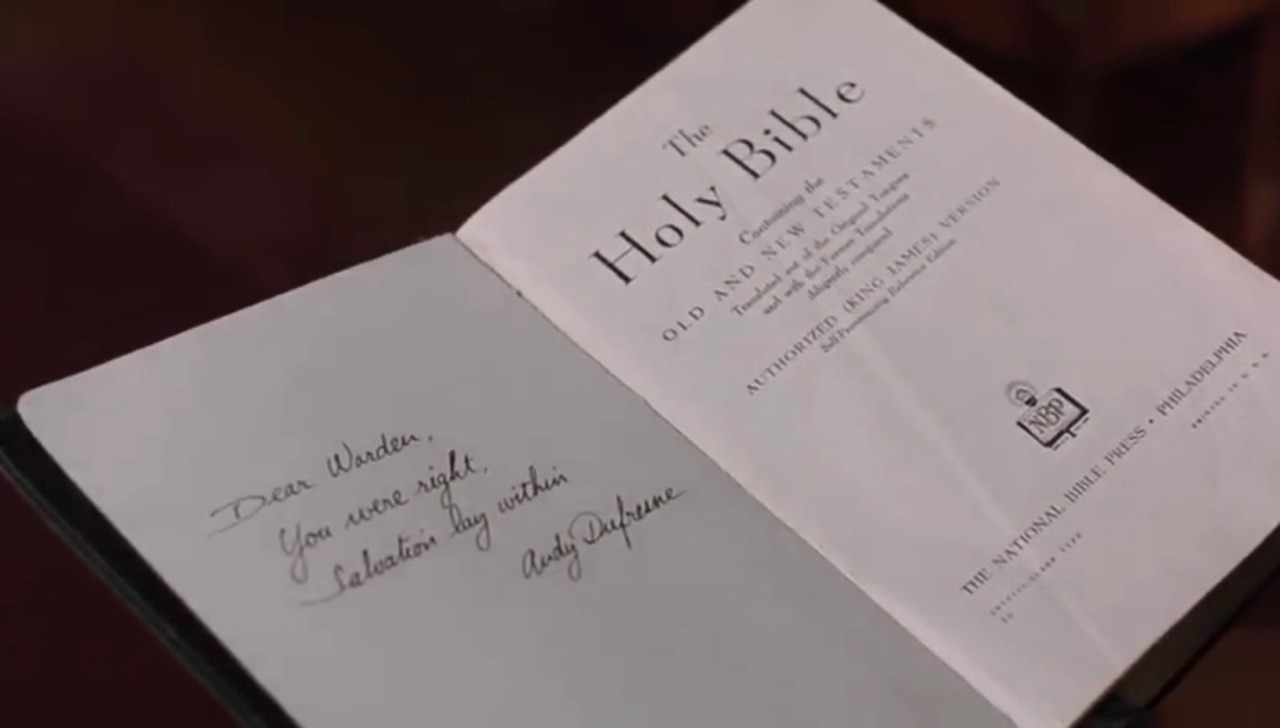 Dear Warden,
You were right.
Salvation lay within
Andy Dufresne
The
Holy Bible
Containing the
OLD AND NEW TESTAMENTS
Translated out of the Original Tongues
and with the Former Translations
diligently compared
AUTHORIZED (KING JAMES) VERSION
Self-Pronouncing Reference Edition
NBP
THE NATIONAL BIBLE PRESS • PHILADELPHIA
PRINTED IN U.S.A.